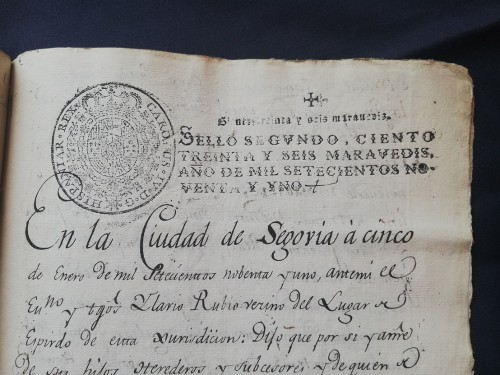 CAROLUS IV D G HISPANIAR REX
treinta y seis maravedis.
SELLO SEGVNDO, CIENTO
TREINTA Y SEIS MARAVEDIS,
AÑO DE MIL SETECIENTOS NO-
VENTA Y VNO.
En la Ciudad de Segovia à cinco
de Enero de mil Setecientos nobenta y uno, antemi el
Esno y tgos Ylario Rubio vezino del Lugar de
Espirdo de esta Jurisdicion: Dijo que por si y
de sus hijos erederos y subcesores, y de quien